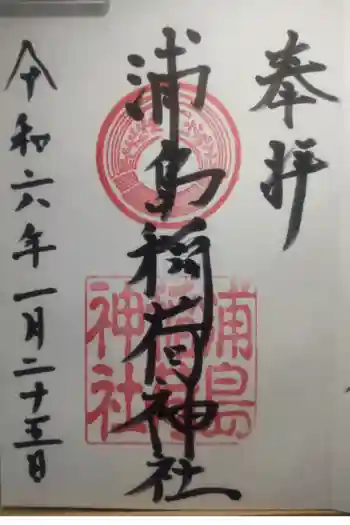 奉拝
浦島稲荷神社
浦島
稲荷
神社
令和六年一月二十五日